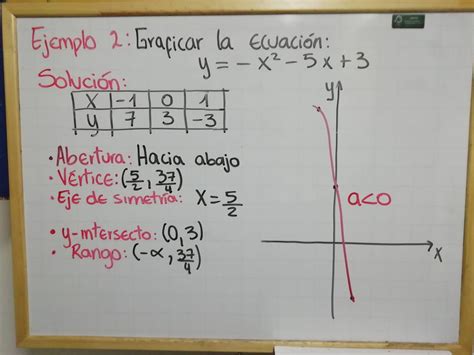 Ejemplo 2: Graficar la Ecuación:
y = - x² - 5x + 3
Solución:
x | -1 | 0 | 1
y | 7 | 3 | -3
• Abertura: Hacia abajo
• Vértice: (5/2, 37/4)
• Eje de simetría: x = 5/2
• y-intersecto: (0,3)
• Rango: (-∝, 37/4)
y
a<0
x